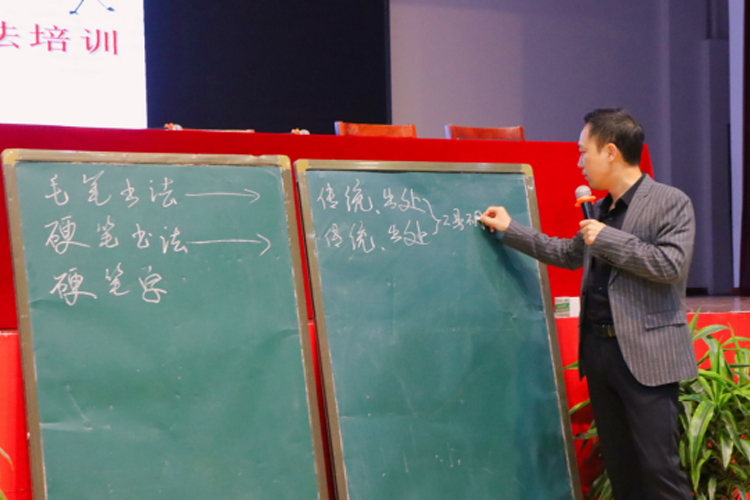 法培训
毛笔书法 → 传统、出处
硬笔书法 → 传统、出处
硬笔字